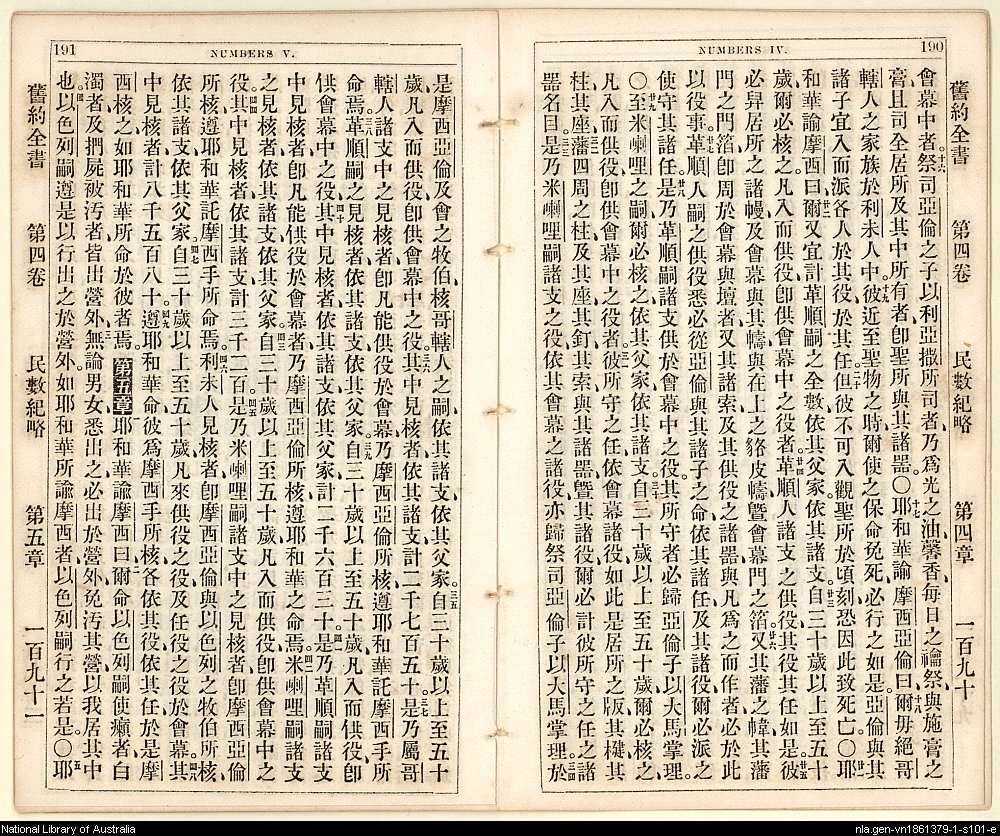 190
NUMBERS IV.
舊約全書 第四卷 民數紀略 第四章 一百九十
會幕中者、十六祭司亞倫之子以利亞撒所司者、乃為光之油、馨香、每日之禴祭、與施膏之
膏、且司全居所、及其中所有者、卽聖所與其諸器、〇十七耶和華諭摩西亞倫曰、十八爾毋絕哥
轄人之家族於利未人中、十九彼近至聖物之時、爾使之保命免死、必行之如是、亞倫與其
諸子宜入而派各人於其役、於其任、二十但彼不可入觀聖所於頃刻、恐因此致死亡、〇廿一耶
和華諭摩西曰、廿二爾又宜計革順嗣之全數、依其父家、依其諸支、廿三自三十歲以上至五十
歲、爾必核之、凡入而供役、卽供會幕中之役者、廿四革順人諸支之供役、其役其任如是、廿五彼
必舁居所之諸幔、及會幕與其幬、與在上之貉皮幬、曁會幕門之箔、廿六又其藩之幃、其藩
門之門箔、卽周於會幕與壇者、又其諸索、及其供役之諸器、與凡為之而作者、必於此
以役事、廿七革順人嗣之供役、悉必從亞倫與其諸子之命、依其諸任、及其諸役、爾必派之
使守其諸任、廿八是乃革順嗣諸支供於會幕中之役、其所守者、必歸亞倫子以大馬掌理、
〇廿九至米喇哩之嗣、爾必核之、依其父家、依其諸支、三十自三十歲以上至五十歲、爾必核之、
凡入而供役、卽供會幕中之役者、卅一彼所守之任、依會幕諸役、如此、是居所之版、其楗、其
柱、其座、卅二藩四周之柱、及其座、其釘、其索、與其諸器、曁其諸役、爾必計彼所守之任之諸
器名目、卅三是乃米喇哩嗣諸支之役、依其於會幕之諸役、亦歸祭司亞倫子以大馬掌理、卅四於
191
NUMBERS V.
是摩西亞倫及會之牧伯、核哥轄人之嗣、依其諸支、依其父家、三五自三十歲以上至五十
歲、凡入而供役、卽供會幕中之役、三六其中見核者、依其諸支、計二千七百五十、三七是乃屬哥
轄人諸支中之見核者、卽凡能供役於會幕、乃摩西亞倫所核、遵耶和華託摩西手所
命焉、三八革順嗣之見核者、依其諸支、依其父家、三九自三十歲以上至五十歲、凡入而供役、卽
供會幕中之役、四十其中見核者、依其諸支、依其父家、計二千六百三十、四一是乃革順嗣諸支
中見核者、卽凡能供役於會幕者、乃摩西亞倫所核、遵耶和華之命焉、四二米喇哩嗣諸支
之見核者、依其諸支、依其父家、四三自三十歲以上至五十歲、凡入而供役、卽供會幕中之
役、四四其中見核者、依其諸支、計三千二百、四五是乃米喇哩嗣諸支中之見核者、卽摩西亞倫
所核、遵耶和華託摩西手所命焉、四六利未人見核者、卽摩西亞倫與以色列之牧伯所核、
依其諸支、依其父家、四七自三十歲以上至五十歲、凡來供役之役、及任役之役於會幕、四八其
中見核者、計八千五百八十、四九遵耶和華命、彼為摩西手所核、各依其役、依其任、於是摩
西核之、如耶和華所命於彼者焉、第五章耶和華諭摩西曰、二爾命以色列嗣、使癩者、白
濁者、及捫屍被汚者、皆出營外、三無論男女、悉出之、必出於營外、免汚其營、以我居其中
也、四以色列嗣遵是以行、出之於營外、如耶和華所諭摩西者、以色列嗣行之若是、〇五耶
舊約全書 第四卷 民數紀略 第五章 一百九十一
National Library of Australia
nla.gen-vn1861379-1-s101-e